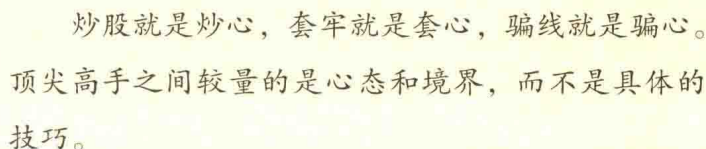 炒股就是炒心，套牢就是套心，骗线就是骗心。
顶尖高手之间较量的是心态和境界，而不是具体的
技巧。